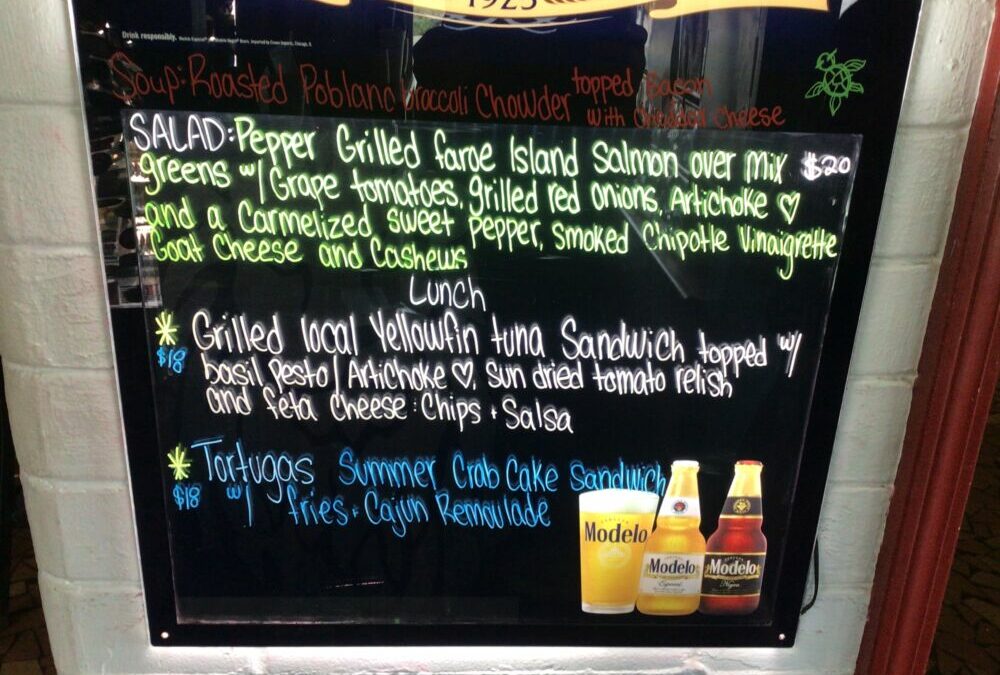 1925
Drink responsibly.
Soup: Roasted Poblano broccoli Chowder topped Bacon
with Cheddar Cheese
SALAD: Pepper Grilled faroe Island Salmon over mix $20
greens w/ Grape tomatoes, grilled red onions, Artichoke ♡
and a Carmelized sweet pepper, Smoked Chipotle Vinaigrette
Goat Cheese and Cashews
Lunch
* Grilled local Yellowfin tuna Sandwich topped w/
$18 basil Pesto, Artichoke ♡, sun dried tomato relish
and feta Cheese : Chips + Salsa
* Tortugas Summer Crab Cake Sandwich
$18 w/ fries + Cajun Remoulade
Modelo
Modelo
Especial
Modelo
Negra